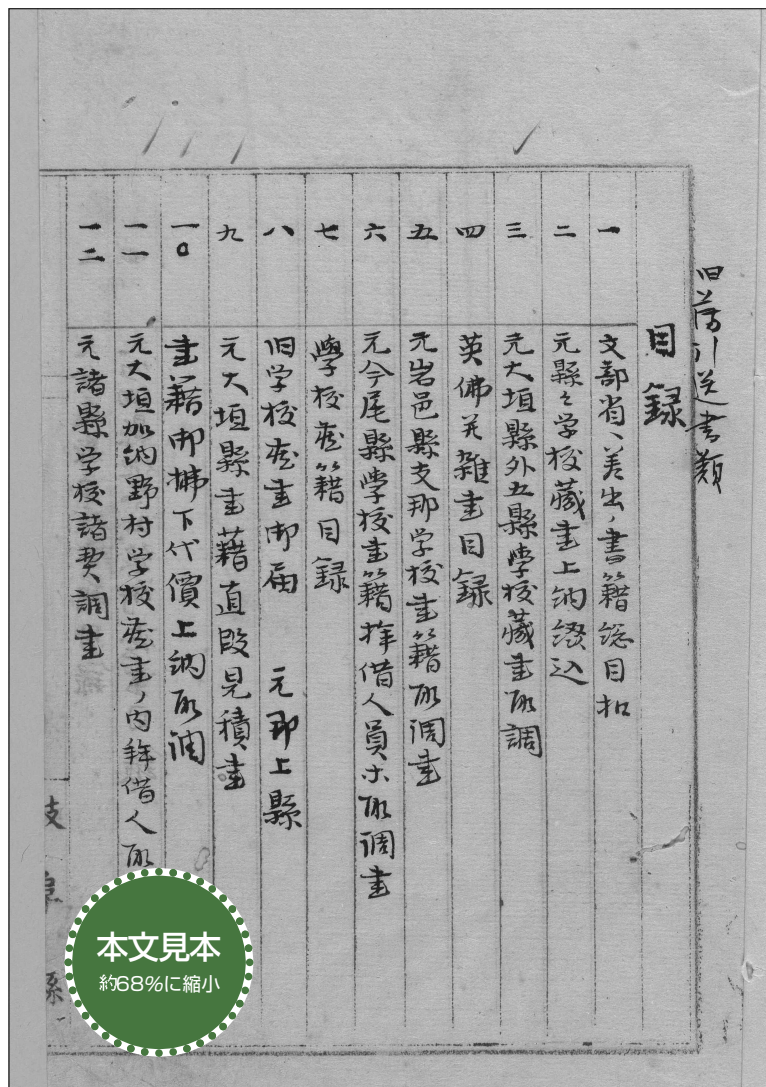 旧藩引送書類
目録
一 文部省ヘ差出ノ書籍総目扣
二 元縣々学校藏書上納綴込
三 元大垣縣外五縣學校藏書取調
四 英佛並雑書目録
五 元岩邑縣支那学校書籍取調書
六 元今尾縣學校書籍拝借人員等取調書
七 學校蔵籍目録
八 旧学校蔵書御届 元郡上縣
九 元大垣縣書籍直段見積書
一〇 書籍御拂下代價上納取調
一一 元大垣加納野村学校蔵書ノ内拝借人取
一二 元諸縣学校諸費調書
岐阜縣
本文見本
約68%に縮小